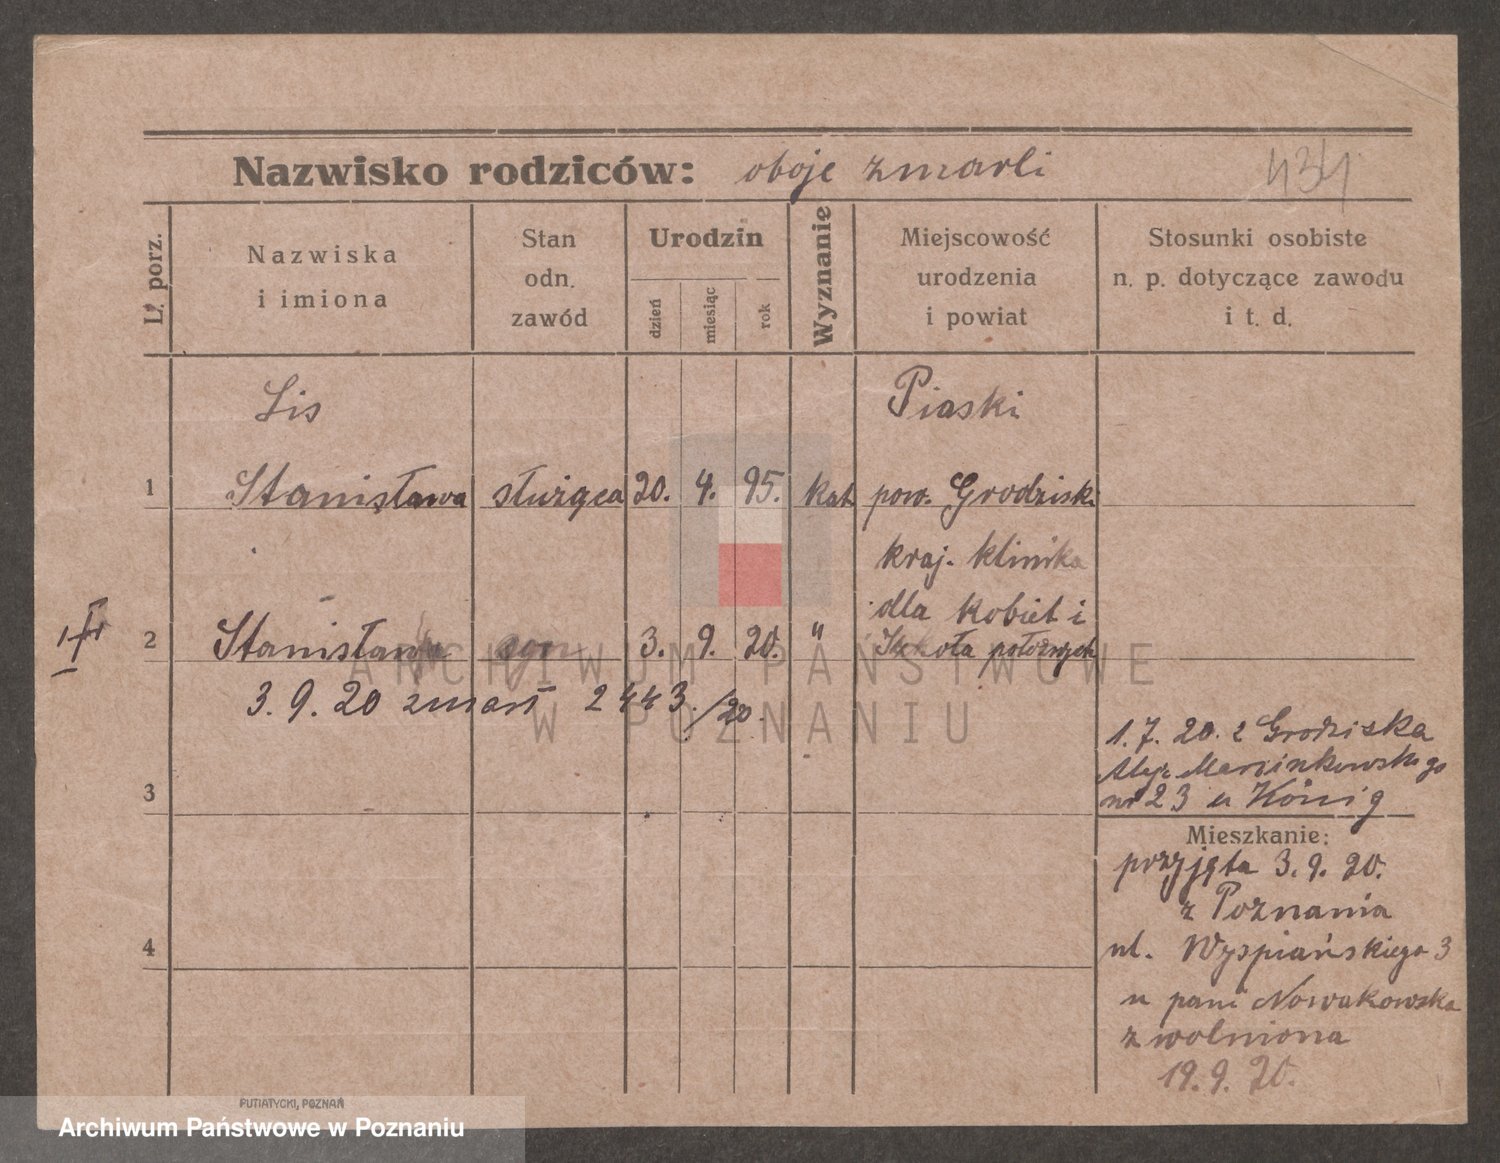 Nazwisko rodziców: oboje zmarli
434
L. porz.
Nazwiska
i imiona
Stan
odn.
zawód
Urodzin
dzień
miesiąc
rok
Wyznanie
Miejscowość
urodzenia
i powiat
Stosunki osobiste
n. p. dotyczące zawodu
i t. d.
Lis
Piaski
1 Stanisława służąca 20. 4. 95. kat. pow. Grodzisk
kraj. klinika
dla kobiet i
2 Stanisław 3. 9. 20. " Szkoła położnych
3. 9. 20 zmarł 2443/20.
1. 7. 20. z Grodziska
Aleje Marcinkowskiego
3 nr 23 u König
Mieszkanie:
przyjęta 3. 9. 20.
z Poznania
4 ul. Wyspiańskiego 3
u pani Nowakowska
zwolniona
19. 9. 20.
PUTIATYCKI, POZNAŃ
ARCHIWUM PAŃSTWOWE
W POZNANIU
Archiwum Państwowe w Poznaniu